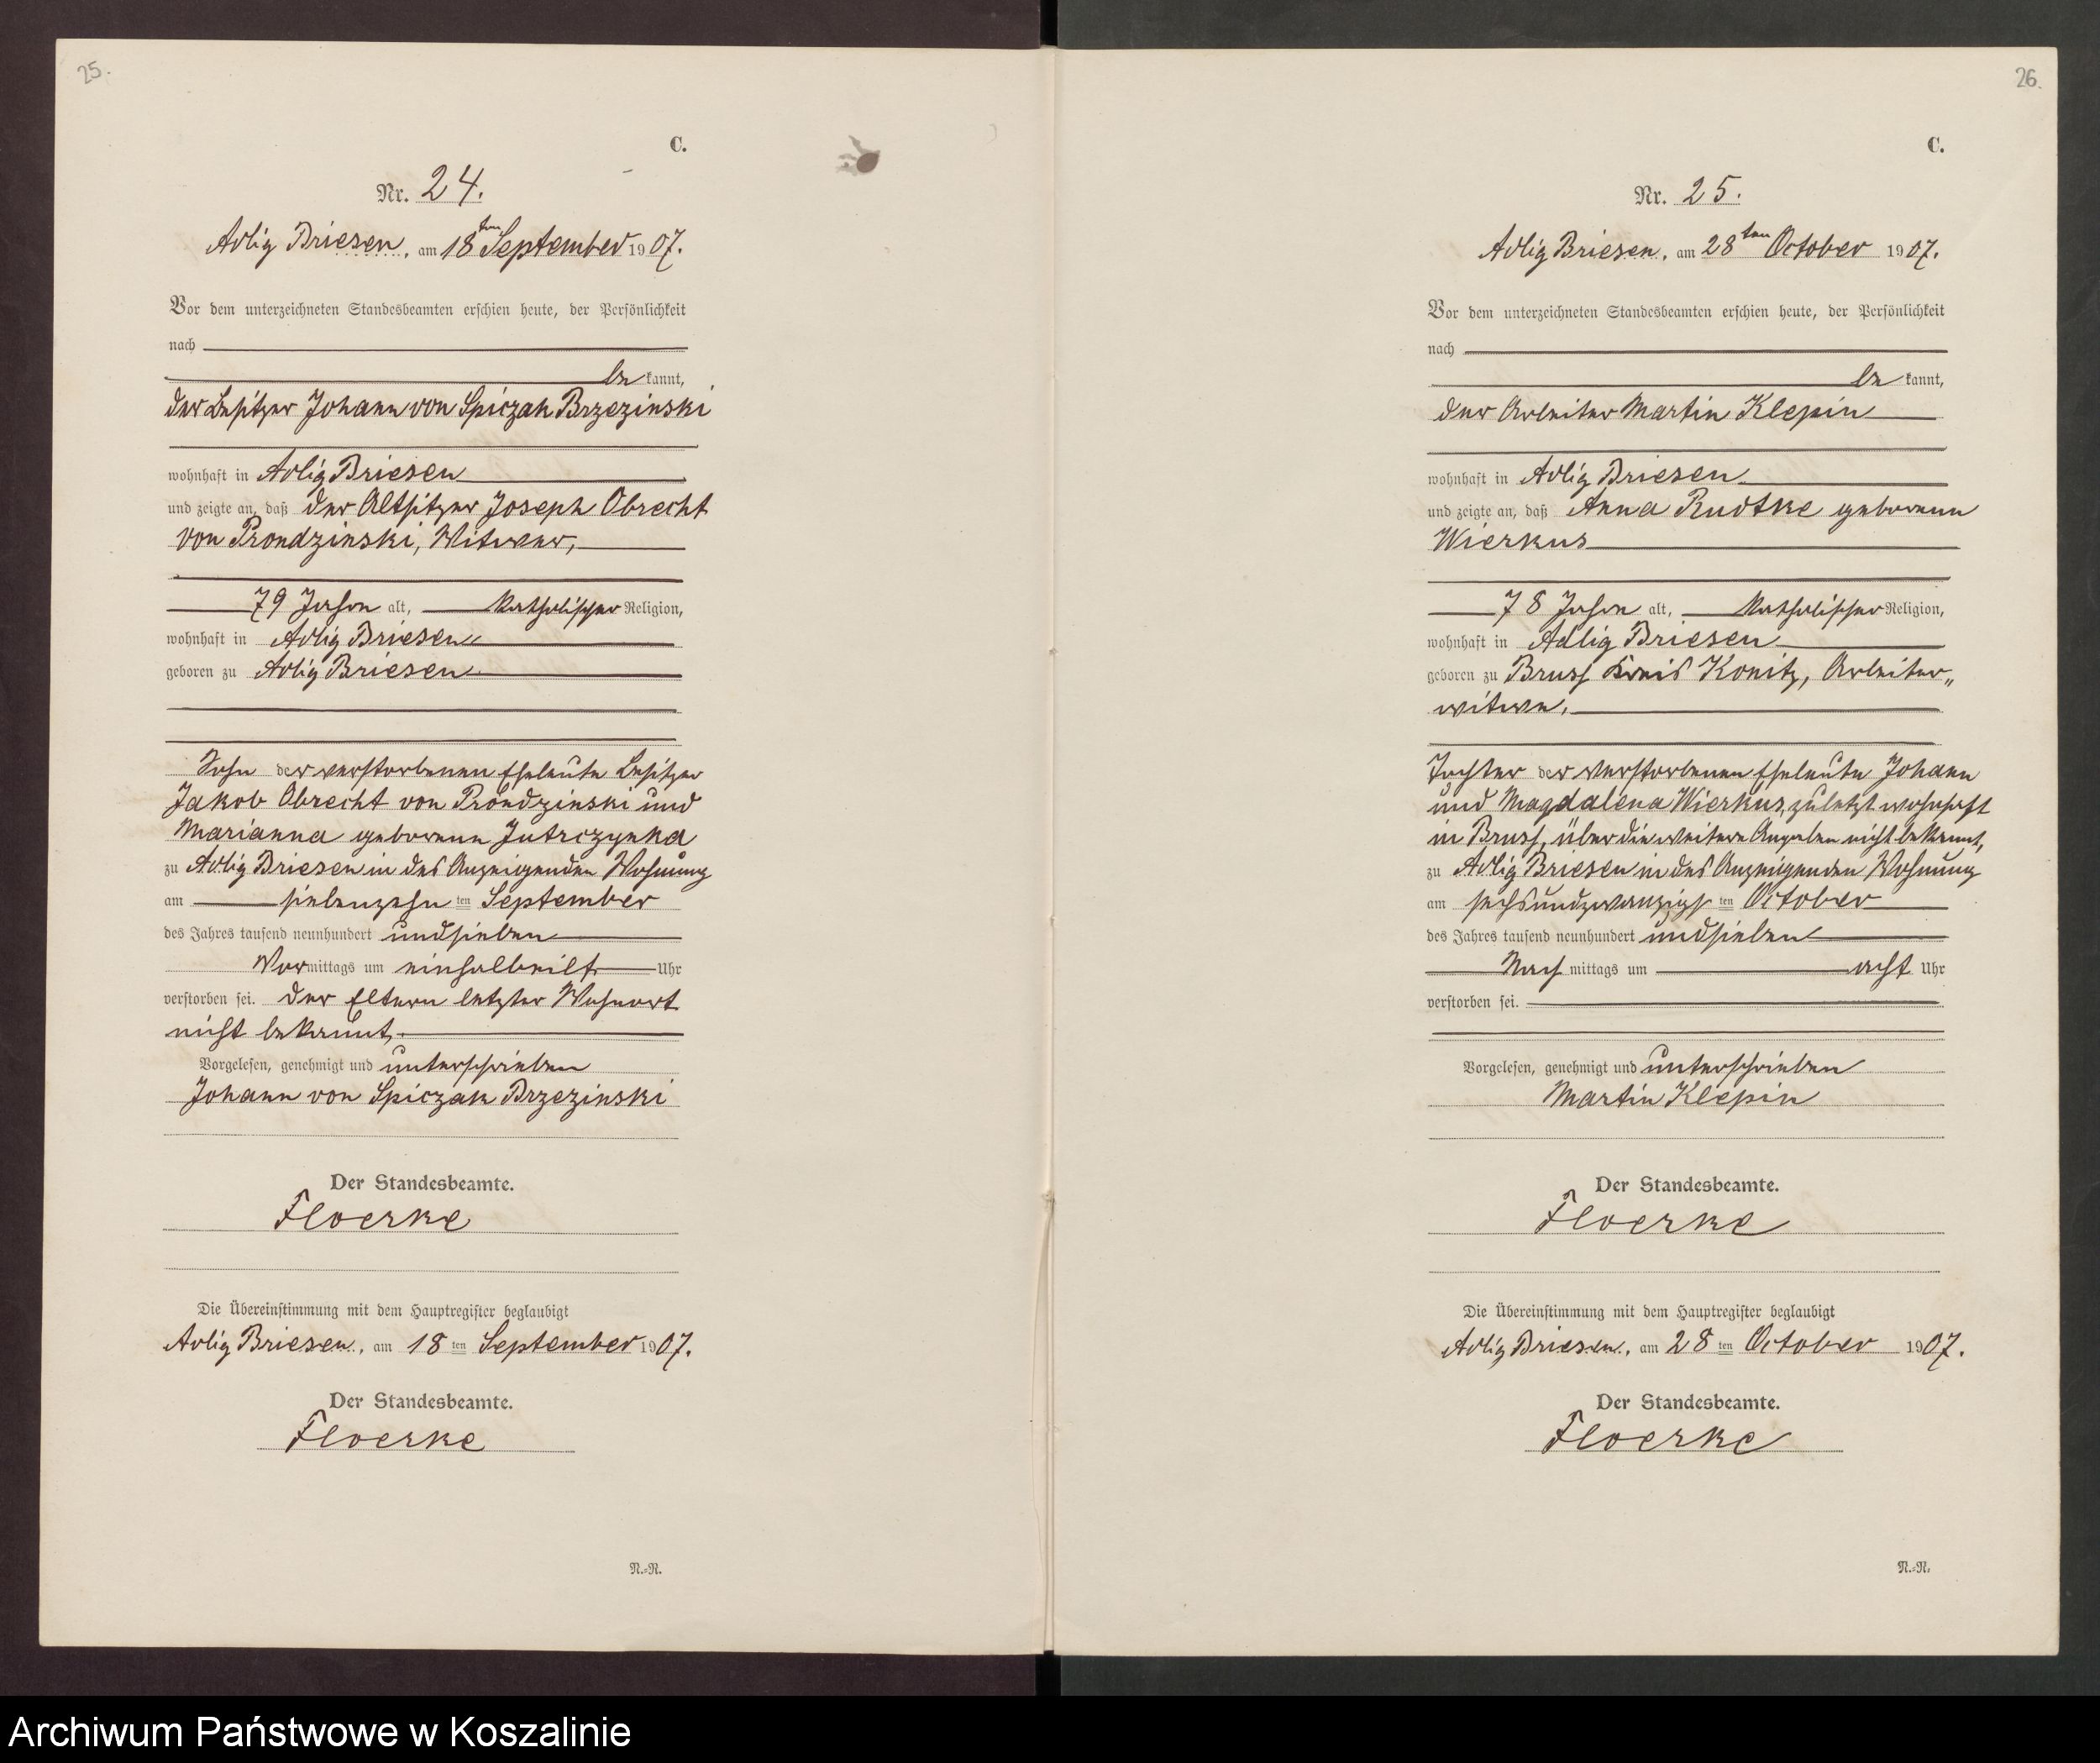 25.
C.
Nr. 24.
Adlig Briesen, am 18ten September 1907.
Vor dem unterzeichneten Standesbeamten erschien heute, der Persönlichkeit
nach
be kannt,
der Besitzer Johann von Spiczak Brzezinski
wohnhaft in Adlig Briesen
und zeigte an, daß der Altsitzer Joseph Obrecht
von Prondzinski, Witwer,
79 Jahren alt, katholischer Religion,
wohnhaft in Adlig Briesen
geboren zu Adlig Briesen
Sohn der verstorbenen Eheleute Besitzer
Jakob Obrecht von Prondzinski und
Marianna geborenen Jutrczynka
zu Adlig Briesen in des Anzeigenden Wohnung
am siebenzehn ten September
des Jahres tausend neunhundert und sieben
Vormittags um einhalbeilf Uhr
verstorben sei. Der Eltern letzter Wohnort
nicht bekannt.
Vorgelesen, genehmigt und unterschrieben
Johann von Spiczak Brzezinski
Der Standesbeamte.
Floerke
Die Übereinstimmung mit dem Hauptregister beglaubigt
Adlig Briesen, am 18 ten September 1907.
Der Standesbeamte.
Floerke
N.=R.
26.
C.
Nr. 25.
Adlig Briesen, am 28ten October 1907.
Vor dem unterzeichneten Standesbeamten erschien heute, der Persönlichkeit
nach
be kannt,
der Arbeiter Martin Klepin
wohnhaft in Adlig Briesen
und zeigte an, daß Anna Rudtke geborene
Wierkus
78 Jahren alt, katholischer Religion,
wohnhaft in Adlig Briesen
geboren zu Bruss Kreis Konitz, Arbeiter„
witwe,
Tochter der verstorbenen Eheleute Johann
und Magdalena Wierkus, zuletzt wohnhaft
in Bruss, über die weitere Angaben nicht bekannt,
zu Adlig Briesen in des Anzeigenden Wohnung
am sechsundzwanzigs ten October
des Jahres tausend neunhundert und sieben
Nach mittags um acht Uhr
verstorben sei.
Vorgelesen, genehmigt und unterschrieben
Martin Klepin
Der Standesbeamte.
Floerke
Die Übereinstimmung mit dem Hauptregister beglaubigt
Adlig Briesen, am 28 ten October 1907.
Der Standesbeamte.
Floerke
N.=R.
Archiwum Państwowe w Koszalinie